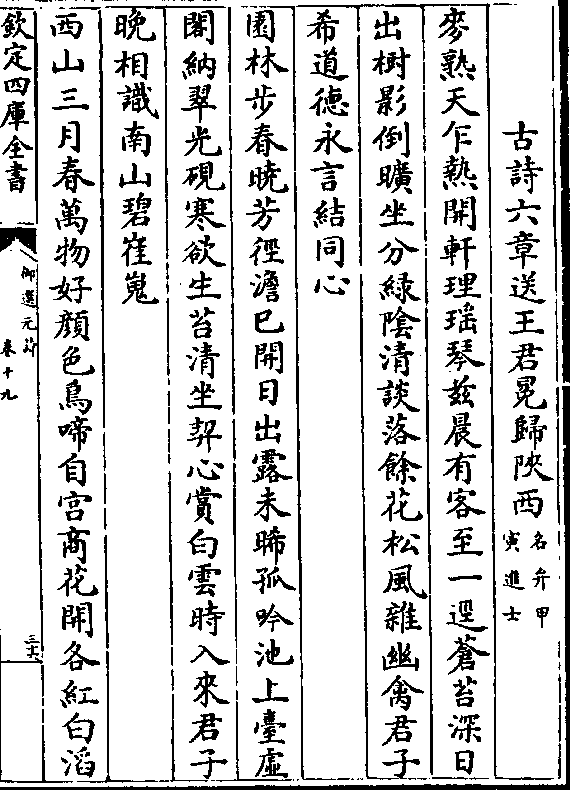 古詩六章送王君冕歸陜西名弁甲寅進士
麥熟天乍熱開軒理瑶琴兹晨有客至一逕蒼苔深日
出樹影倒曠坐分緑陰清談落餘花松風雜幽禽君子
希道德永言結同心
園林步春曉芳徑澹已開日出露未晞孤吟池上臺虚
閣納翠光硯寒欲生苔清坐契心賞白雲時入來君子
晩相識南山碧崔嵬
西山三月春萬物好顔色鳥啼自宫商花開各紅白滔
欽定四庫全書
御選元詩
卷十九
三六